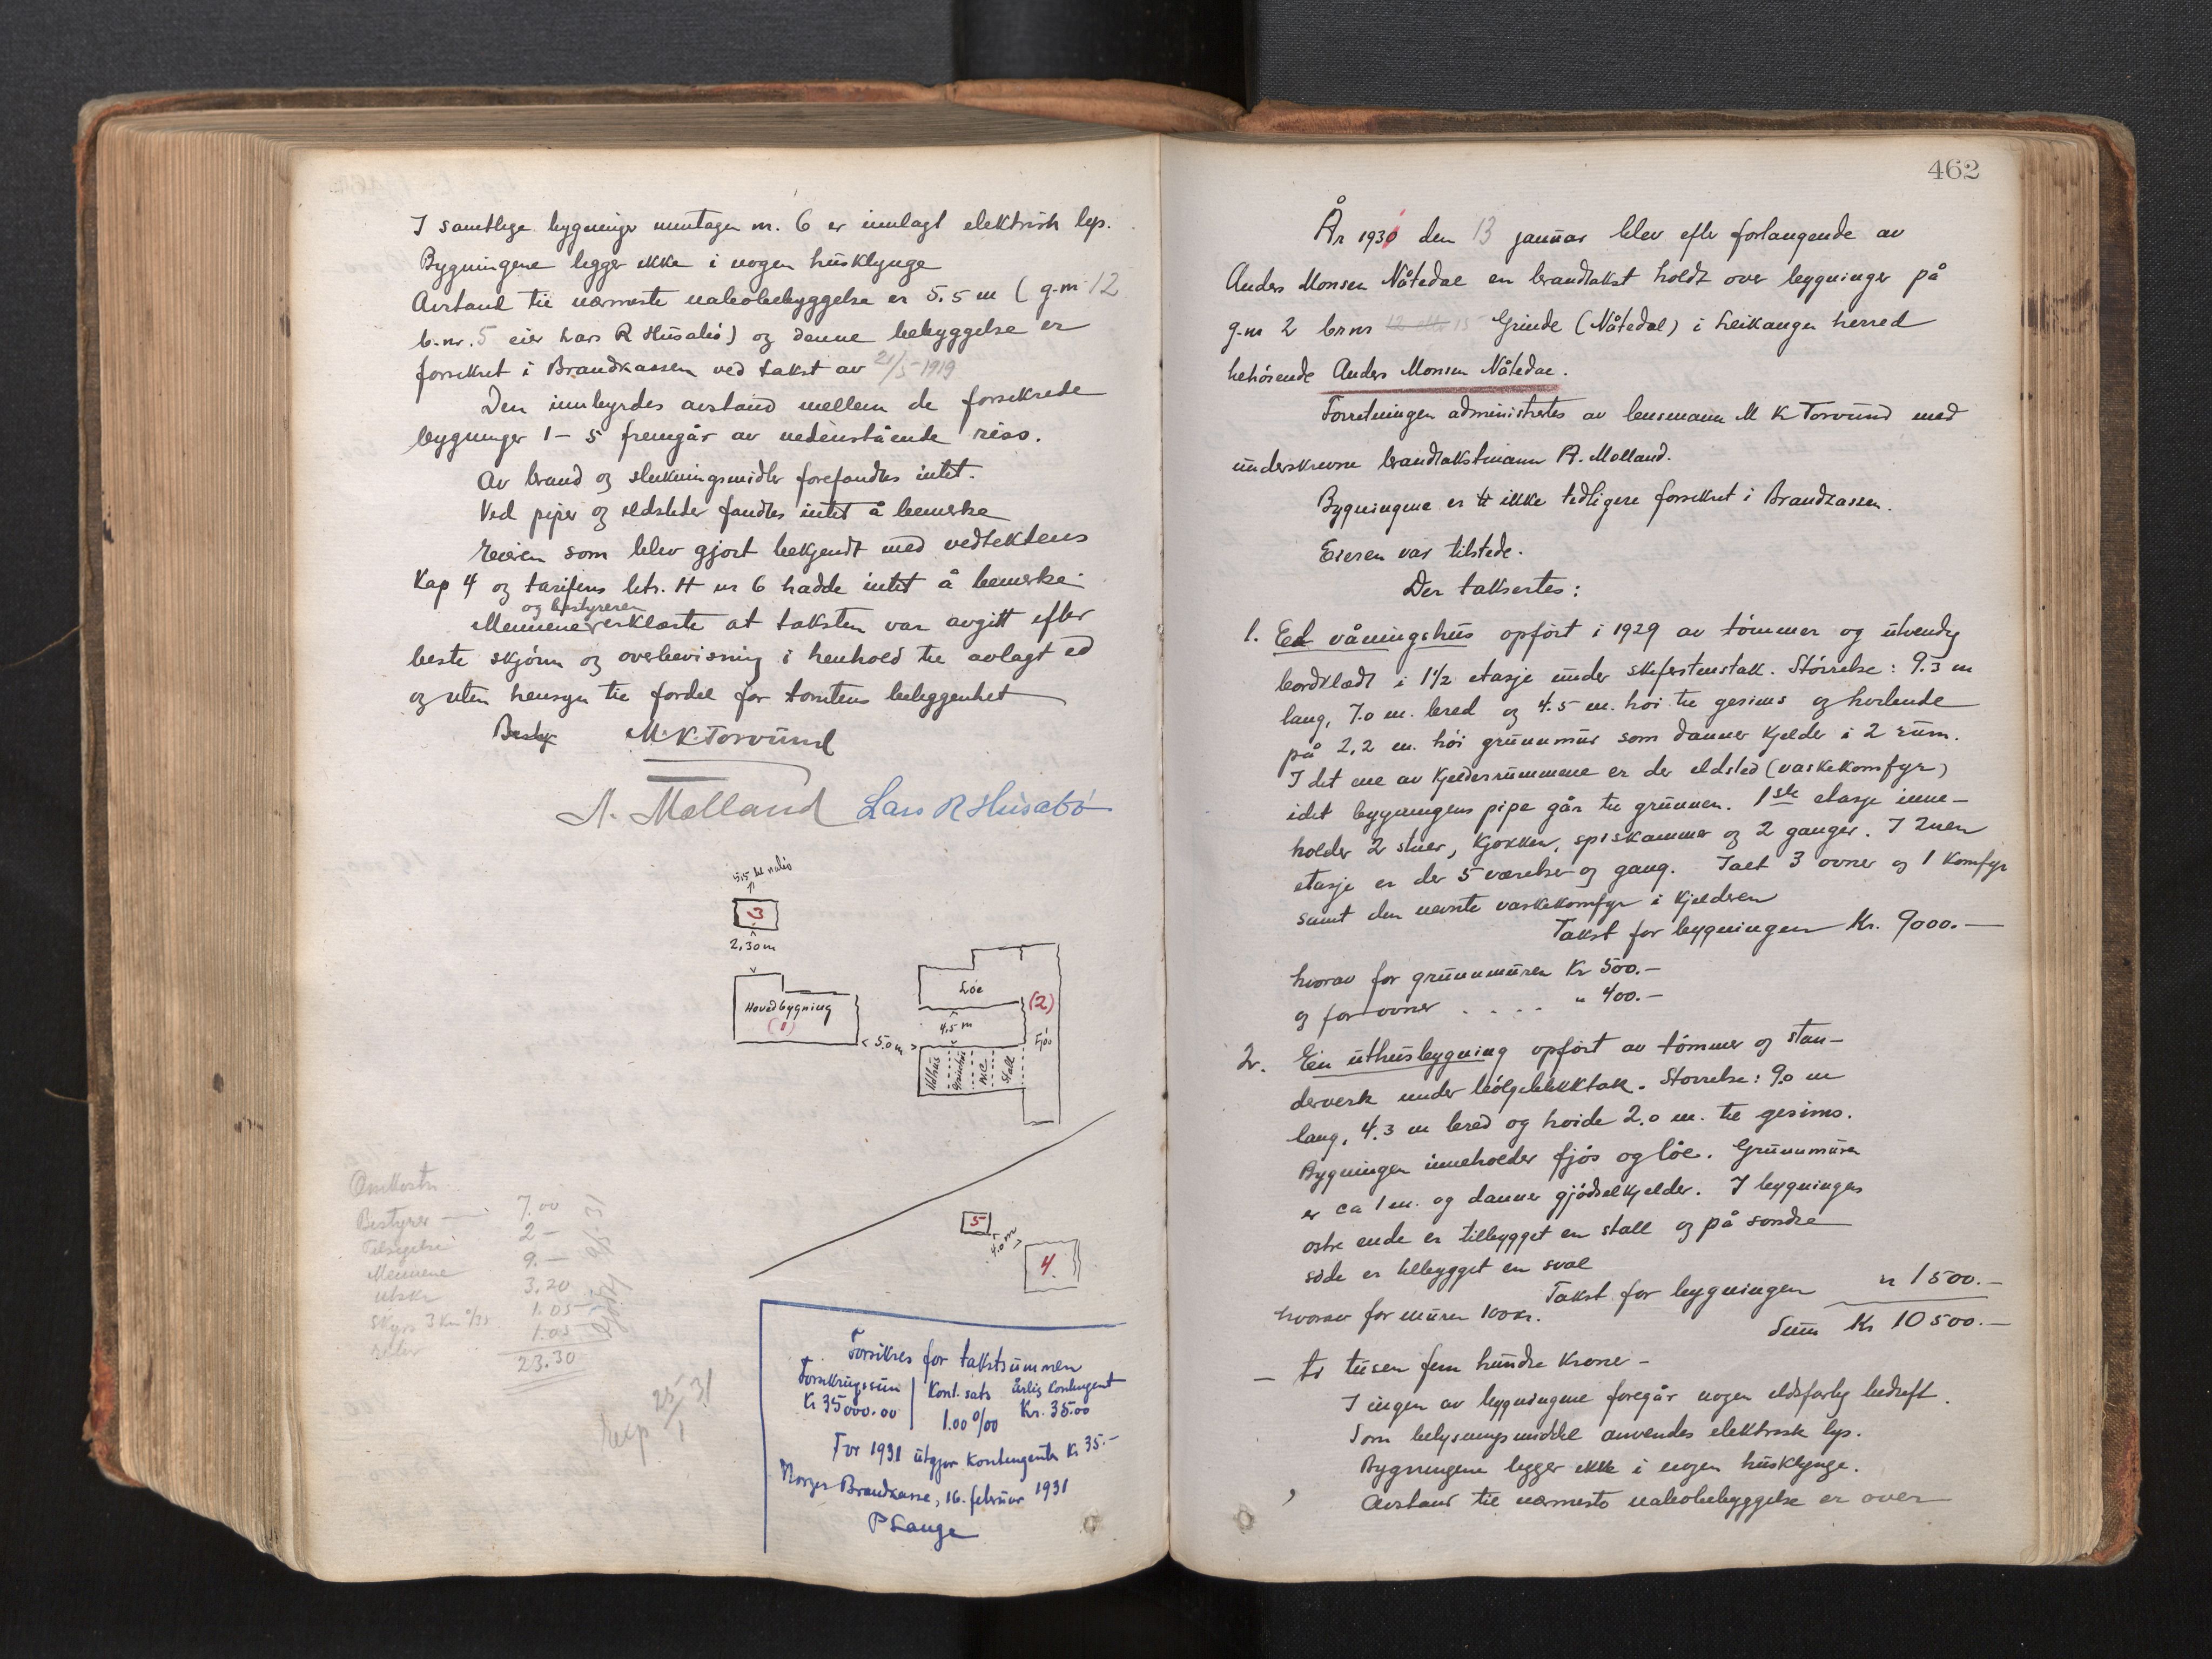 I samtlige bygninger unntagen nr. 6 er innlagt elektrisk lys.
Bygningene ligger ikke i nogen husklynge
Avstand til nærmeste nabobebyggelse er 5.5 m (g.nr 12
b.nr. 5 eier Lars R Husabö) og denne bebyggelse er
forsikret i Brandkassen ved takst av 21/5-1919
Den innbyrdes avstand mellem de forsikrede
bygninger 1-5 fremgår av nedenstående riss.
Av brand og slukningsmidler forefandtes intet.
Ved piper og ildsteder fandtes intet å bemerke
Eieren som blev gjort bekjendt med vedtektens
Kap 4 og tarifens litr. H nr 6 hadde intet å bemerke.
og bestyreren
Mennene erklærte at taksten var avgitt efter
beste skjönn og overbevisning i henhold til avlagt ed
og uten hensyn til fordel for tomtens beleggenhet
Besty M. K. Torvund
A. Mølland Lars R Husabö
5,5 til nabo
3
2,30 m
Hovedbygning
(1)
< 5,0 m >
Löe
(2)
4,5 m
Fjös
Vedhus
W.C.
Stall
5
4.0 m
4.
Omkostn.
Bestyrer 7.00
2 -
Mennene 9. -
utskr 3.20
Skyss 3 Km 0/35 1.05
1.05
23.30
25/1 31
Forsikres for takstsummen
Forsikringssum Kont. sats Årlig Kontingent
Kr 35000.00 1.00 0/00 Kr. 35.00
For 1931 utgjør Kontingenten Kr 35.-
Norges Brandkasse, 16. februar 1931
P Lange
462
År 1930 den 13 januar blev efter forlangende av
Anders Monsen Nåtedal en brandtakst holdt over bygninger på
g.nr 2 brnr 15 Grinde (Nåtedal) i Leikanger herred
tilhörende Anders Monsen Nåtedal.
Forretningen administrertes av lensmann M K Torvund med
underskrevne brandtakstmann A. Mølland.
Bygningene er ikke tidligere forsikret i Brandkassen.
Eieren var tilstede.
Der taksertes:
1. Et våningshus opfört i 1929 av tömmer og utvendig
bordklædt i 1 1/2 etasje under skiferstenstak. Störrelse: 9.3 m
lang, 7.0 m. bred og 4.5 m. höi til gesims og hvilende
på 2,2 m. höi grunnmur som danner Kjelder i 2 rum.
I det ene av Kjelderrummene er der ildsted (vaskekomfyr)
idet bygningens pipe går til grunnen. 1ste etasje inne-
holder 2 stuer, Kjökken, spiskammer og 2 ganger. I 2nen
etasje er der 5 værelser og gang. Ialt 3 ovner og 1 Komfyr
samt den nevnte vaskekomfyr i Kjelderen
Takst for bygningen Kr. 9000.-
hvorav for grunnmuren Kr 500.-
og for ovner . . . . " 400.-
2. En uthusbygning opfört av tömmer og stan-
derverk under bölgeblikktak. Störrelse: 9.0 m
lang, 4.3 m bred og höide 2.0 m. til gesims.
Bygningen inneholder fjös og löe. Grunnmuren
er ca 1 m. og danner gjödselkjelder. I bygningens
östre ende er tilbygget en stall og på söndre
side er tilbygget en sval
Takst for bygningen " 1500.-
hvorav for muren 100 kr.
Sum Kr 10500.-
- ti tusen fem hundre Kroner -
I ingen av bygningene foregår nogen ildsfarlig bedrift.
Som belysningsmiddel anvendes elektrisk lys.
Bygningene ligger ikke i nogen husklynge.
Avstand til nærmeste nabobebyggelse er over